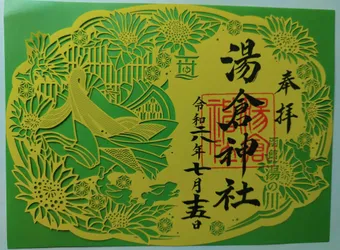 奉拝
湯倉神社
令和六年七月十五日
湯の川